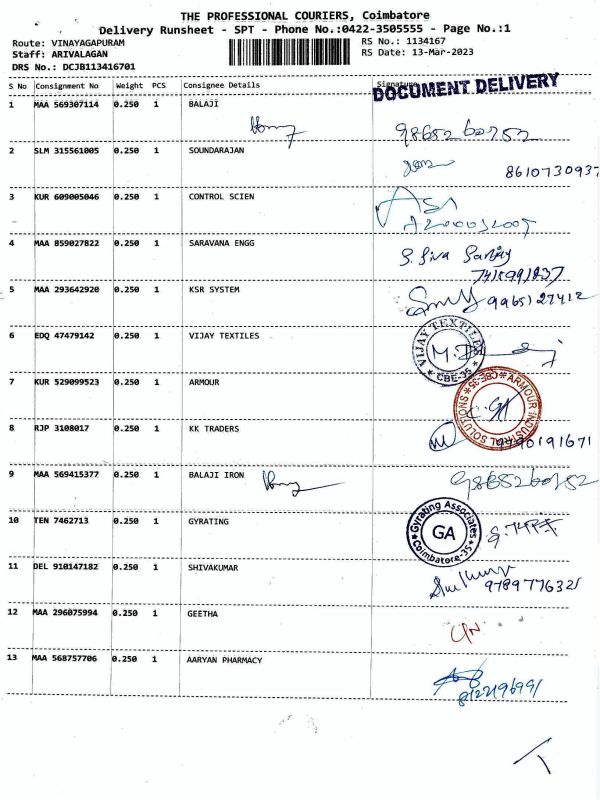 THE PROFESSIONAL COURIERS, Coimbatore
Delivery Runsheet - SPT - Phone No.:0422-3505555 - Page No.:1
Route: VINAYAGAPURAM RS No.: 1134167
Staff: ARIVALAGAN RS Date: 13-Mar-2023
DRS No.: DCJB113416701
S No Consignment No Weight PCS Consignee Details Signature
DOCUMENT DELIVERY
1 MAA 569307114 0.250 1 BALAJI
2 SLM 315561005 0.250 1 SOUNDARAJAN
8610730937
3 KUR 609005046 0.250 1 CONTROL SCIEN
4 MAA 859027822 0.250 1 SARAVANA ENGG
S. Siva Sanjay
7418991837
5 MAA 293642920 0.250 1 KSR SYSTEM
9965127412
6 EDQ 47479142 0.250 1 VIJAY TEXTILES
VIJAY TEXTILES
CBE-35
7 KUR 529099523 0.250 1 ARMOUR
ARMOUR INDUSTRIAL SOLUTIONS CBE-35
8 RJP 3108017 0.250 1 KK TRADERS
9790191671
9 MAA 569415377 0.250 1 BALAJI IRON
10 TEN 7462713 0.250 1 GYRATING
Gyrating Associates
GA
Coimbatore-35
11 DEL 910147182 0.250 1 SHIVAKUMAR
9789776321
12 MAA 296075994 0.250 1 GEETHA
13 MAA 568757706 0.250 1 AARYAN PHARMACY